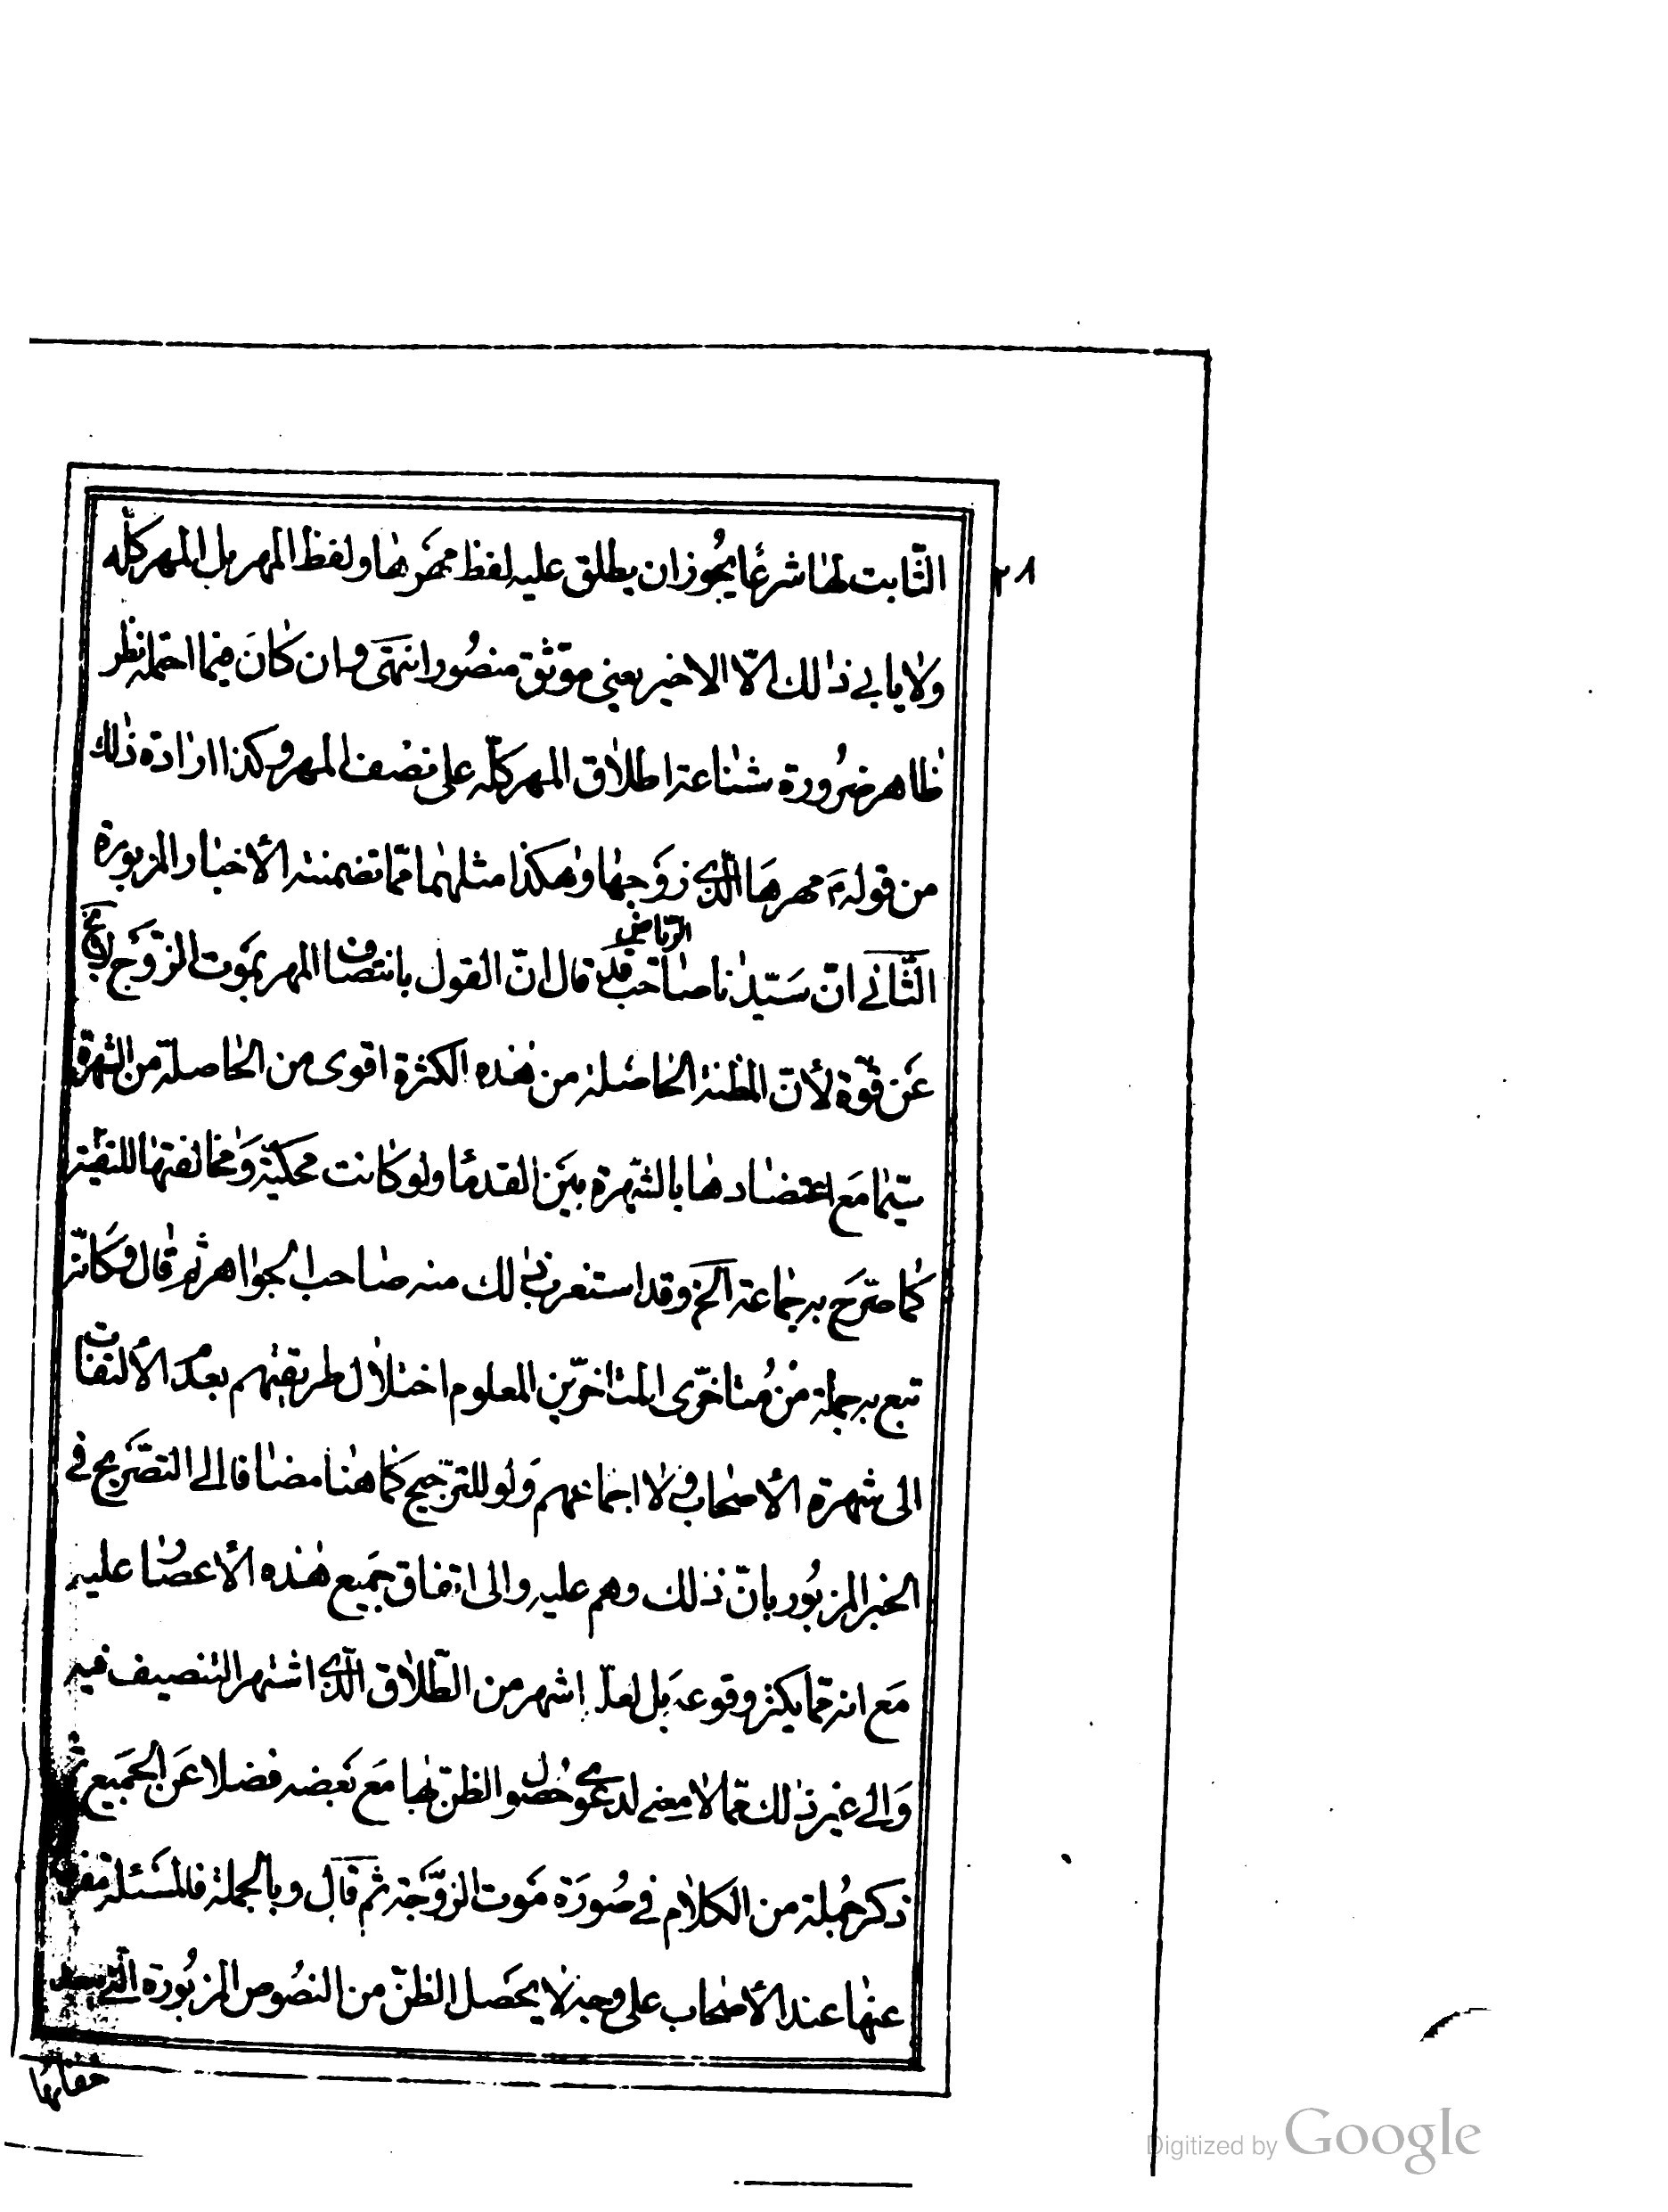 ٢٨
الثّابت لها شرعًا يجوز ان يطلق عليه لفظ مهرها ولفظ المهر بل المهر كلّه
ولا يابى ذلك الّا الاخير يعنى موثق منصور انتهى وان كان فيما احتمله نظر
ظاهر ضرورة شناعة اطلاق المهر كلّه على نصف المهر وكذا ارادة ذلك
من قوله م مهرها الّذى زوجها وهكذا مثلهما ممّا تضمنته الأخبار المزبورة
الثّانى انّ سيّدنا صاحب الرّياض قال انّ القول بانتصاف المهر بموت الزّوج
عن قوّة لأنّ المظنة الحاصلة من هذه الكثرة اقوى من الحاصلة من الشهرة
سيّما مع اعتضادها بالشّهرة بين القدما ولو كانت محكيّة ومخالفتها للتقيّة
كما صرّح به جماعة الخ وقد استغرب ذلك منه صاحب الجواهر ثم قال وكانّه
تبع به جملة من متاخّرى المتاخّرين المعلوم اختلال طريقتهم بعدم الألتفات
الى شهرة الأصحاب ولا اجماعهم ولو للترّجيح كما هنا مضافا الى التصّريح فى
الخبر المزبور بانّ ذلك وهم عليه والى اتفاق جميع هذه الأعصار عليه
مع انه ممّا يكثر وقوعه بل لعلّه اشهر من الطّلاق الّذى اشتهر التنصيف فيه
والى غير ذلك ممّا لا معنى لدعوى حصول الظنّ بها مع بعضه فضلا عن الجميع ثم
ذكر جملة من الكلام فى صورة موت الزّوجة ثم قال وبالجملة فالمسئلة
عنها عند الأصحاب على وجه لا يحصل الظنّ من النصوص المزبورة الّتى